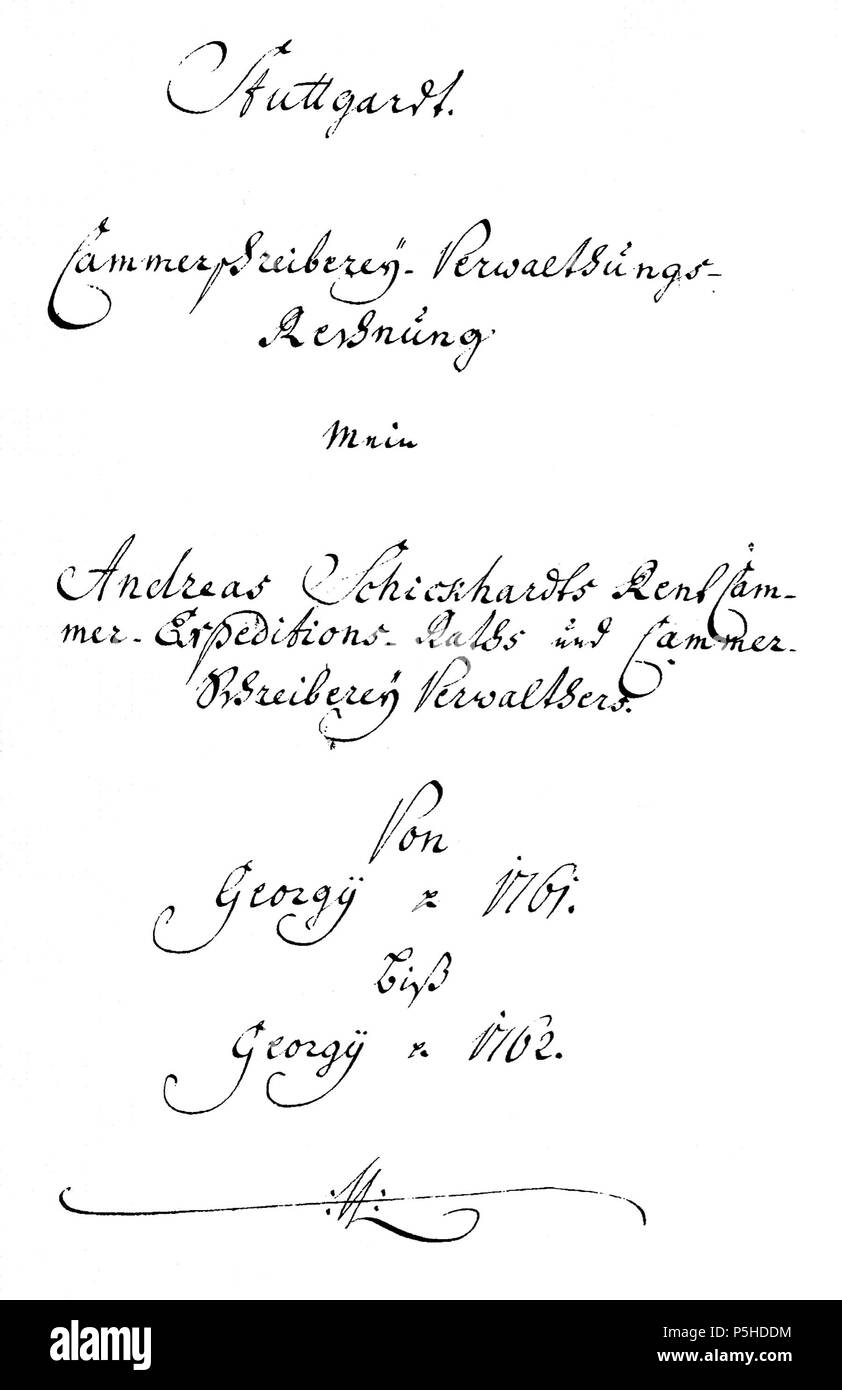 Stuttgardt.
Cammerschreiberey-Verwalthungs-
Rechnung
Mein
Andreas Schickhardts Rent Cam-
mer-Expeditions-Raths und Cammer-
Schreiberey Verwalthers.
Von
Georgÿ 1761.
biß
Georgÿ 1762.
alamy
alamy
Image ID: P5HDDM
www.alamy.com